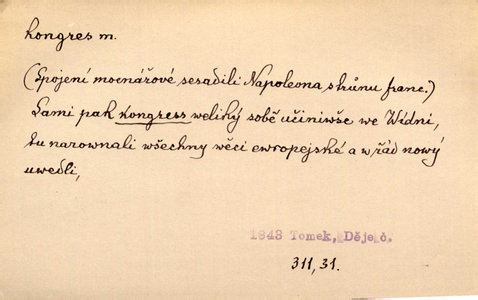 kongres m.
(Spojení mocnářové sesadili Napoleona s trůnu franc.)
Sami pak kongress weliký sobě učiniwše we Wídni,
tu narownali wšechny wěci ewropejské a w řád nowý
uwedli,
1843 Tomek, Děje č.
311, 31.